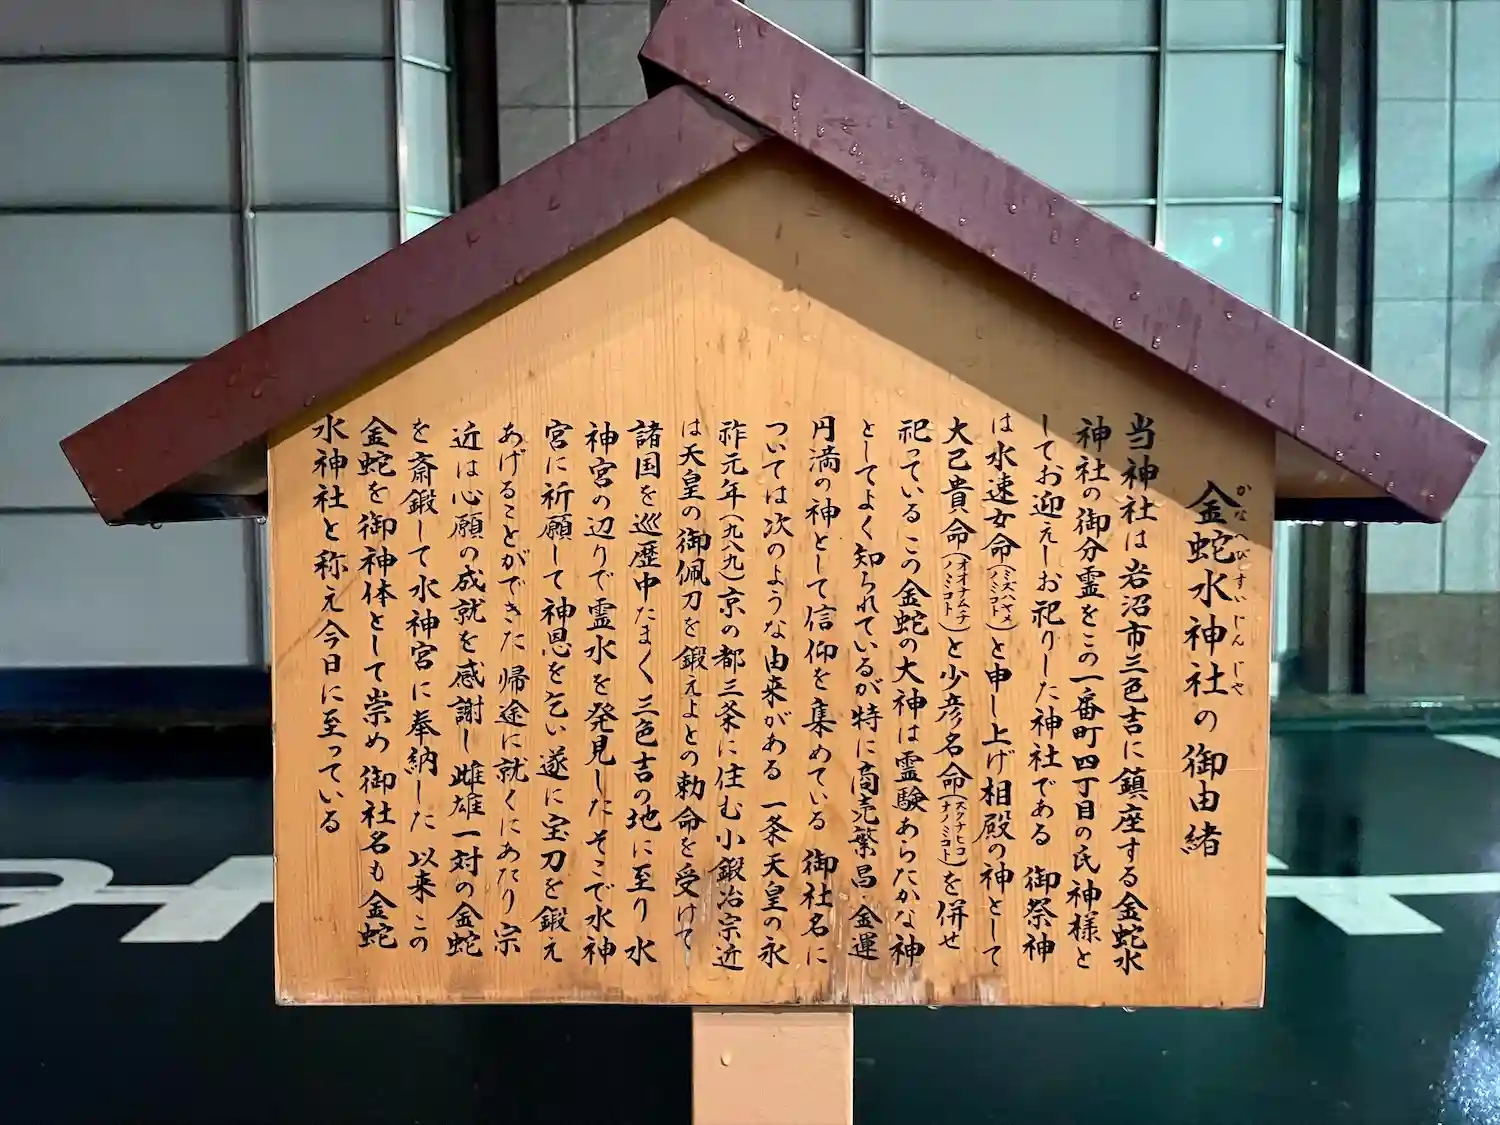 金蛇水神社の御由緒
かなへびすいじんじゃ
当神社は岩沼市三色吉に鎮座する金蛇水
神社の御分霊をこの一番町四丁目の氏神様と
してお迎えしお祀りした神社である 御祭神
は水速女命(ミズハヤメノミコト)と申し上げ相殿の神として
大己貴命(オオナムチノミコト)と少彦名命(スクナヒコナノミコト)を併せ
祀っている この金蛇の大神は霊験あらたかな神
としてよく知られているが特に商売繁昌・金運
円満の神として信仰を集めている 御社名に
ついては次のような由来がある 一条天皇の永
祚元年(九八九)京の都三条に住む小鍛冶宗近
は天皇の御佩刀を鍛えよとの勅命を受けて
諸国を巡歴中たまく三色吉の地に至り水
神宮の辺りで霊水を発見したそこで水神
宮に祈願して神恩を乞い遂に宝刀を鍛え
あげることができた 帰途に就くにあたり宗
近は心願の成就を感謝し雌雄一対の金蛇
を斎鍛して水神宮に奉納した 以来この
金蛇を御神体として崇め御社名も金蛇
水神社と称え今日に至っている